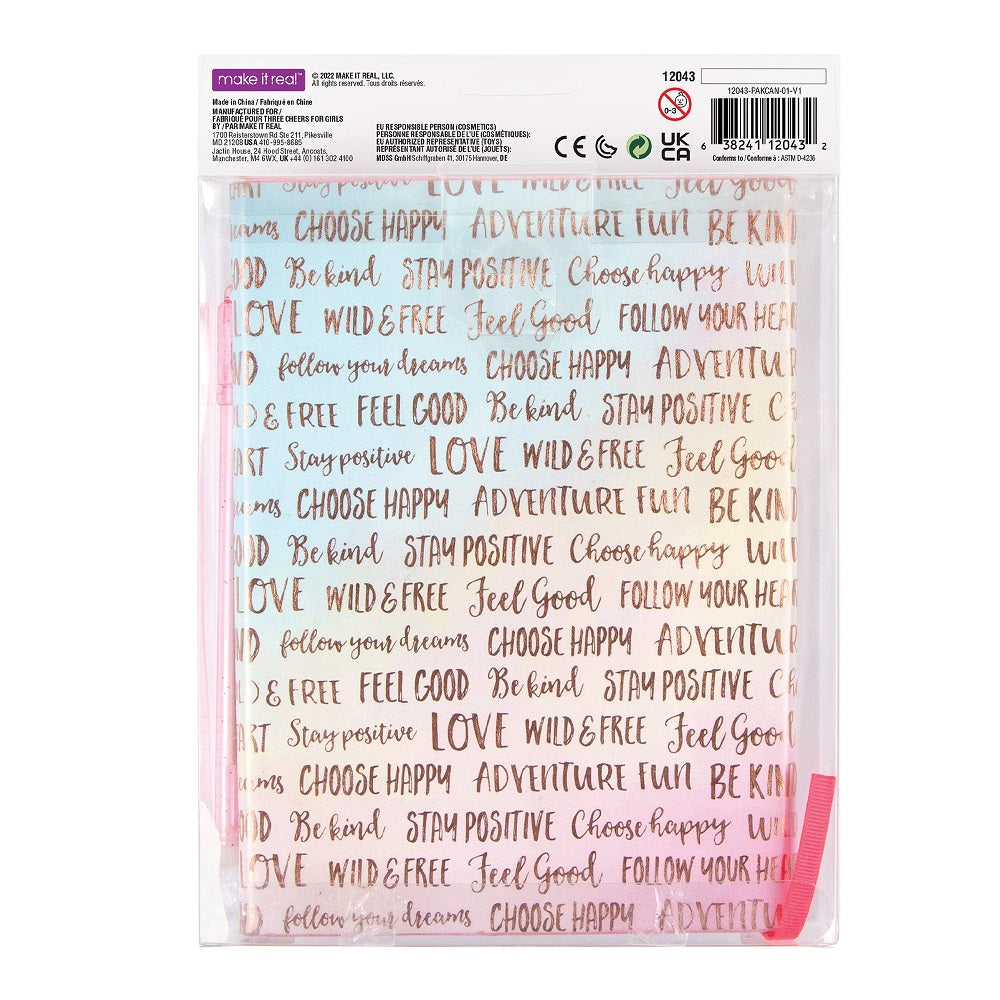 make it real™
© 2022 MAKE IT REAL, LLC.
All rights reserved. Tous droits réservés.
Made in China / Fabriqué en Chine
MANUFACTURED FOR /
FABRIQUÉ POUR THREE CHEERS FOR GIRLS
BY / PAR MAKE IT REAL
1700 Reisterstown Rd Ste 211, Pikesville
MD 21208 USA 410-995-8685
Jactin House, 24 Hood Street, Ancoats,
Manchester, M4 6WX, UK +44 (0) 161 302 4100
EU RESPONSIBLE PERSON (COSMETICS)
PERSONNE RESPONSABLE DE L'UE (COSMÉTIQUES):
EU AUTHORIZED REPRESENTATIVE (TOYS)
REPRÉSENTANT AUTORISÉ DE L'UE (JOUETS):
MDSS GmbH Schiffgraben 41, 30175 Hannover, DE
CE
UK
CA
0-3
12043
12043-PAKCAN-01-V1
6 38241 12043 2
Conforms to / Conforme à : ASTM D-4236
ART Stay positive LOVE WILD & FREE Feel Good
eams CHOOSE HAPPY ADVENTURE FUN BE KIN
OOD Be kind STAY POSITIVE Choose happy WIL
LOVE WILD & FREE Feel Good FOLLOW YOUR HEAR
ND follow your dreams CHOOSE HAPPY ADVENTUR
LD & FREE FEEL GOOD Be kind STAY POSITIVE C
EART Stay positive LOVE WILD & FREE Feel Good
eams CHOOSE HAPPY ADVENTURE FUN BE KIND
OOD Be kind STAY POSITIVE Choose happy WIL
LOVE WILD & FREE Feel Good FOLLOW YOUR HEAR
ND follow your dreams CHOOSE HAPPY ADVENTUR
LD & FREE FEEL GOOD Be kind STAY POSITIVE Ch
EART Stay positive LOVE WILD & FREE Feel Good
eams CHOOSE HAPPY ADVENTURE FUN BE KIND
OOD Be kind STAY POSITIVE Choose happy WIL
LOVE WILD & FREE Feel Good FOLLOW YOUR HEA
ND follow your dreams CHOOSE HAPPY ADVENTU